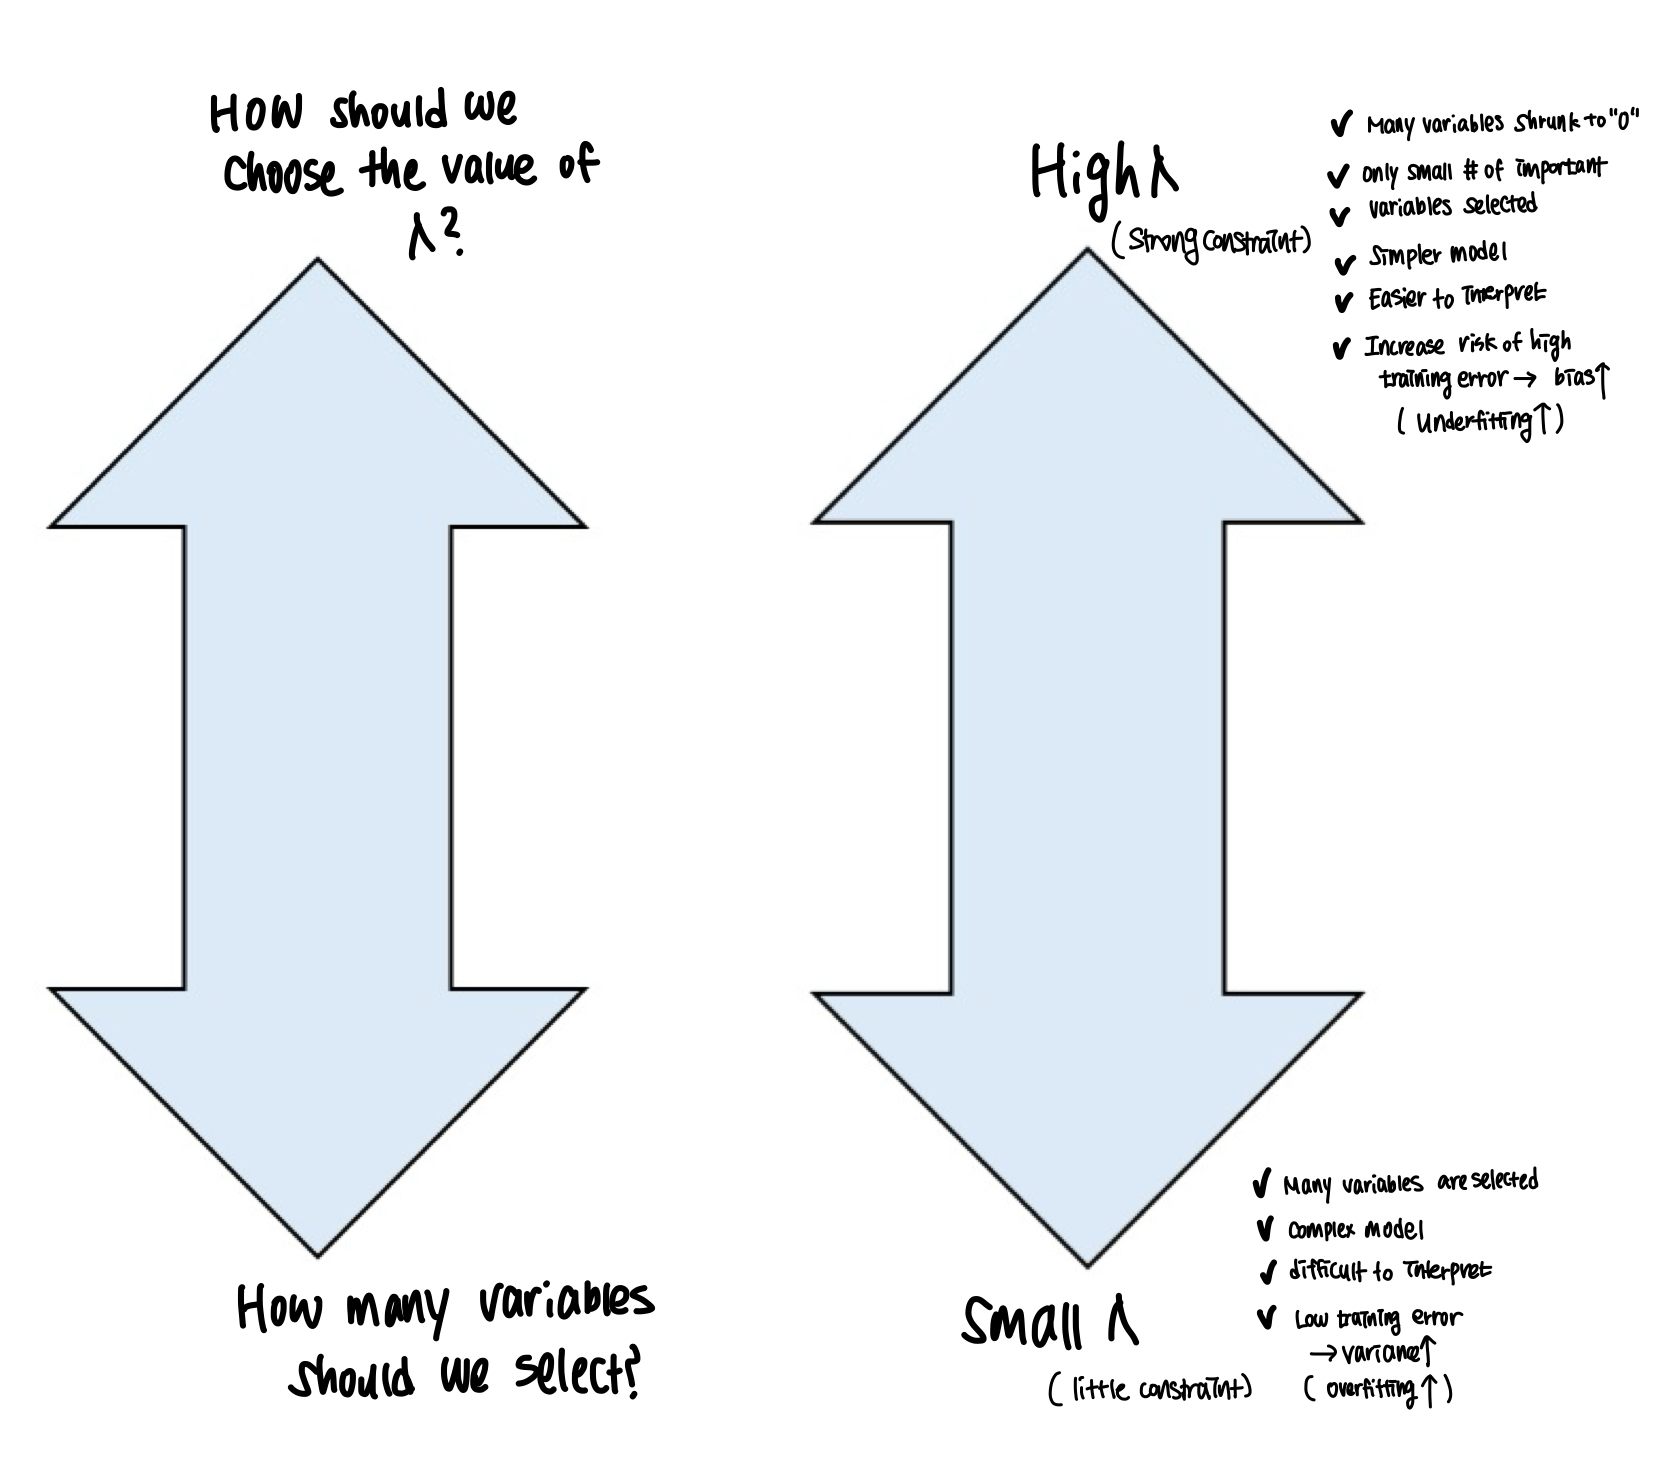 How should we
choose the value of
λ?
How many variables
should we select?
High λ
(Strong constraint)
✓ Many variables shrunk to "0"
✓ only small # of important
✓ variables selected
✓ Simpler model
✓ Easier to interpret
✓ Increase risk of high
training error → bias↑
(Underfitting↑)
Small λ
(little constraint)
✓ Many variables are selected
✓ complex model
✓ difficult to interpret
✓ Low training error
→ variance↑
(overfitting↑)